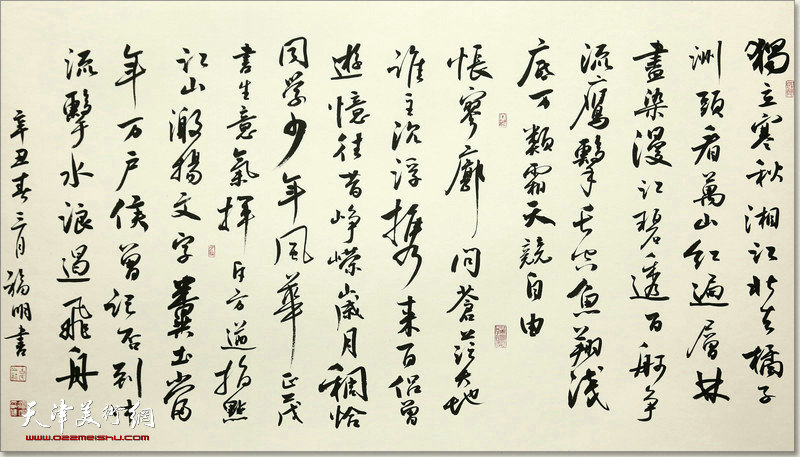 獨立寒秋湘江北去橘子
洲頭看萬山紅遍層林
盡染漫江碧透百舸爭
流鷹擊長空魚翔淺
底万類霜天競自由
悵寥廓問蒼茫大地
誰主沉浮攜來百侶曾
遊憶往昔崢嶸歲月稠恰
同學少年風華正茂
書生意氣揮斥方遒指點
江山激揚文字糞土當
年万戶侯曾記否到中
流擊水浪遏飛舟
辛丑春三月福明書
天津美術網
www.022meishu.com